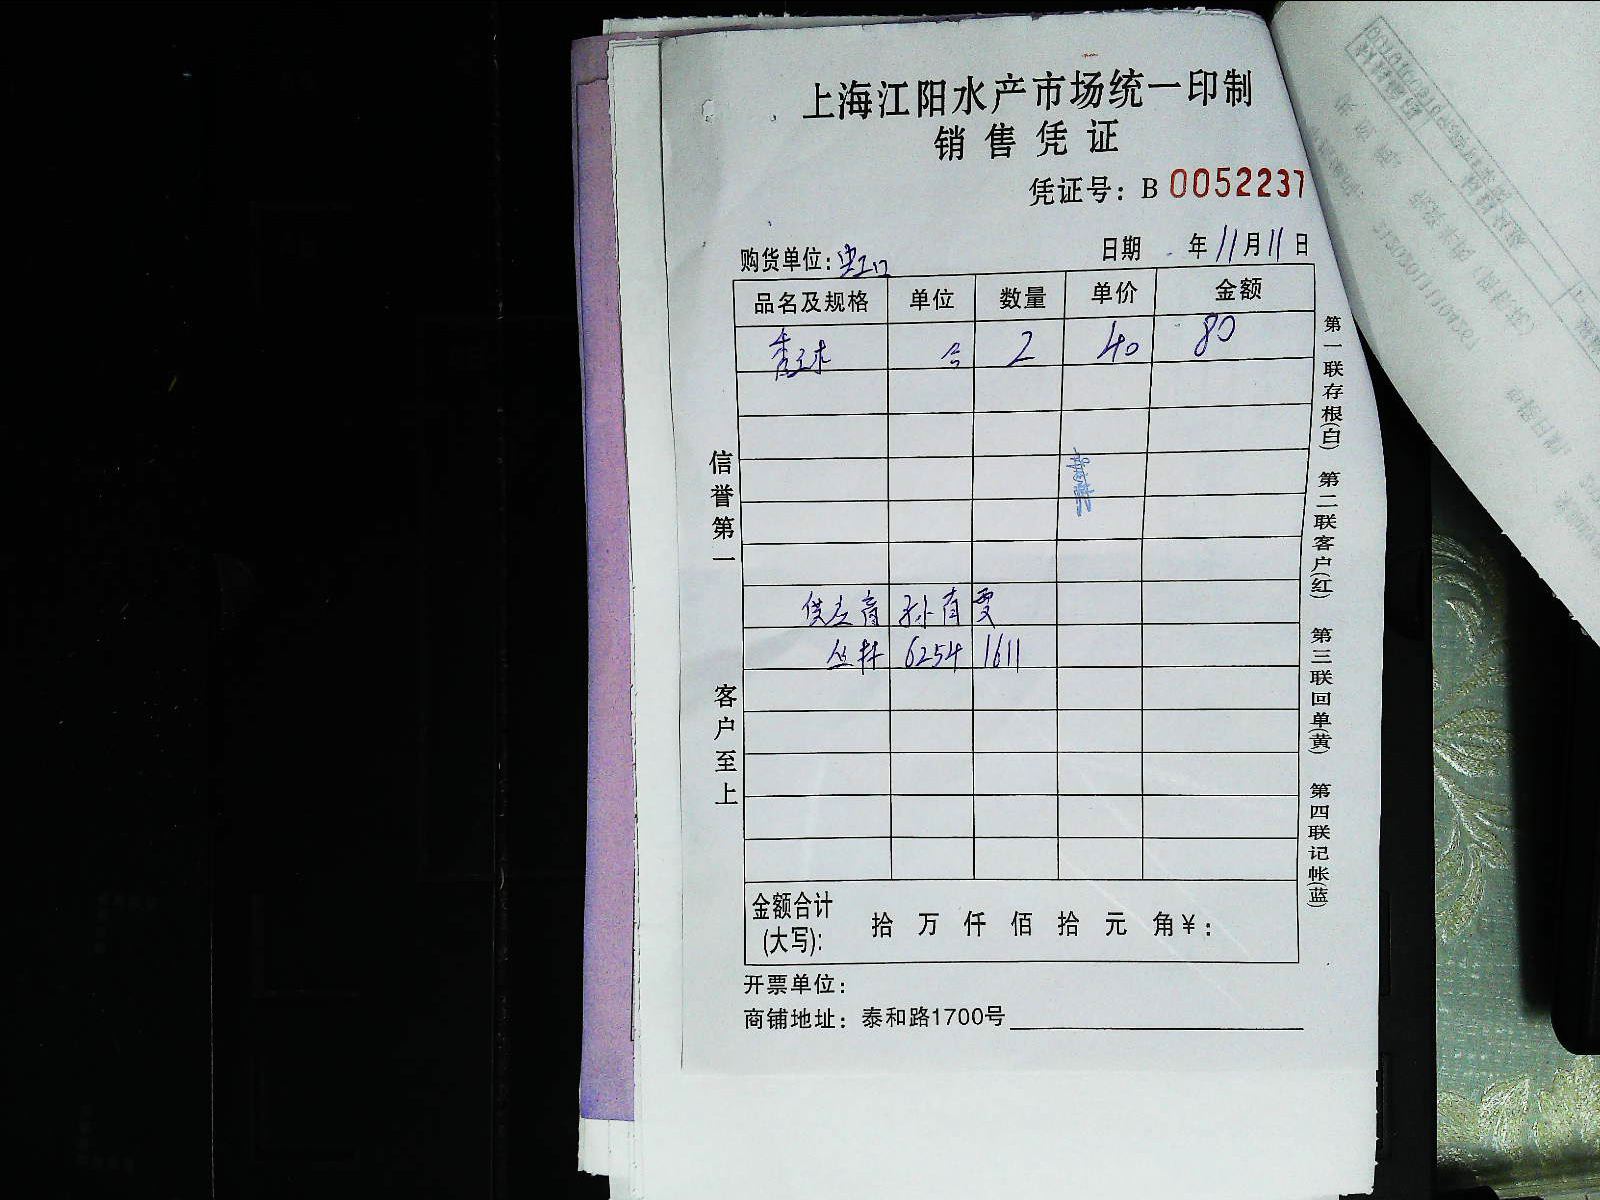 上海江阳水产市场统一印制
销售凭证
凭证号：B 0052237
购货单位：虹口 日期 年 11 月 11 日
品名及规格 单位 数量 单价 金额
2 40 80
孙
丛林 6254 1611
金额合计(大写)： 拾 万 仟 佰 拾 元 角 ¥：
开票单位：
商铺地址：泰和路1700号
信誉第一 客户至上
第一联存根(白) 第二联客户(红) 第三联回单(黄) 第四联记帐(蓝)